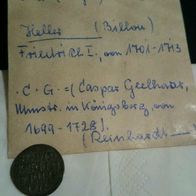 Heller (Billon)
Friedrich I., von 1701-1713
C. G. = (Caspar Geelhaar,
Münzm. in Königsberg, von
1699-1728).
(Reinhardt